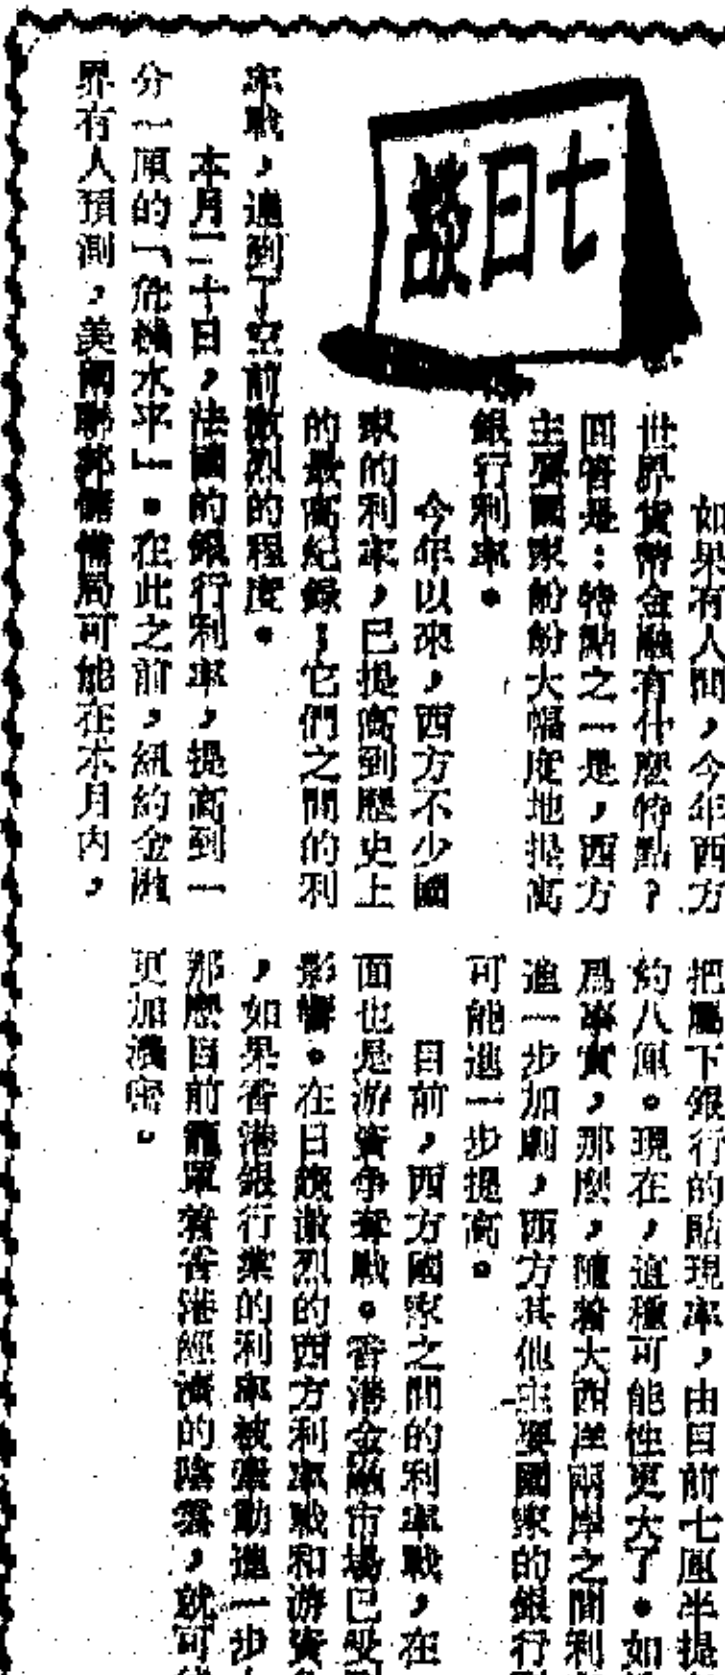 七日談
如果有人問，今年西方
世界貨幣金融有什麼特點？
回答是：特點之一是，西方
主要國家紛紛大幅度地提高
銀行利率。
今年以來，西方不少國
家的利率，已提高到歷史上
的最高紀錄；它們之間的利
率戰，達到了空前激烈的程度。
本月二十日，法國的銀行利率，提高到一
分一厘的「危機水平」。在此之前，紐約金融
界有人預測，美國聯邦儲備局可能在本月內，
把屬下銀行的貼現率，由目前七厘半提
約八厘。現在，這種可能性更大了。如
爲事實，那麼，隨着大西洋兩岸之間利
進一步加劇，西方其他主要國家的銀行
可能進一步提高。
目前，西方國家之間的利率戰，在
面也是游資爭奪戰。香港金融市場已受
影響。在日趨激烈的西方利率戰和游資
，如果香港銀行業的利率被牽動進一步
那麼目前籠罩着香港經濟的陰霧，就可
更加濃密。